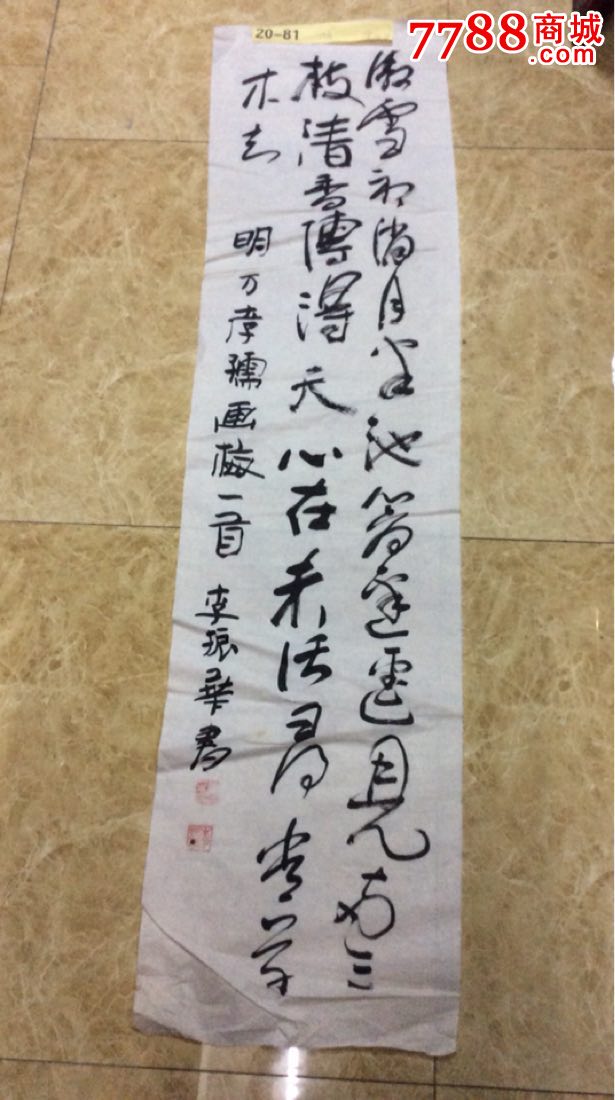 20-81
7788商城
微雪初消月半池篱邊遥見两三
枝清香傳得天心在未话尋常草
木知 明方孝孺画梅一首 李振華書